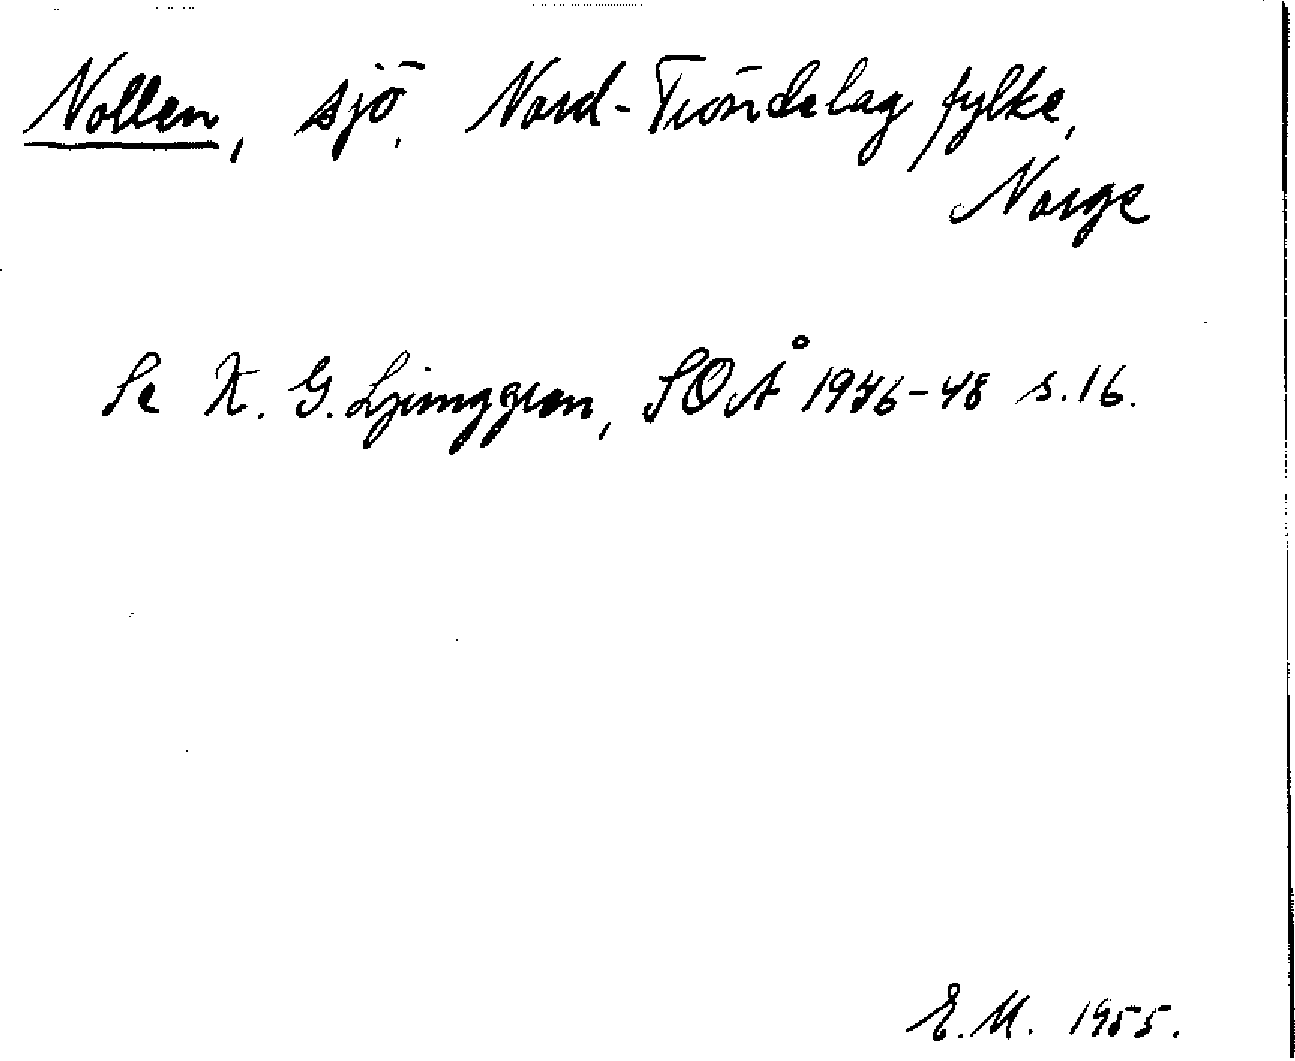 Nollen, sjö, Nord-Tröndelag fylke,
Norge
Se K. G. Ljunggren, SOÅ 1946-48 s. 16.
E. M. 1955.